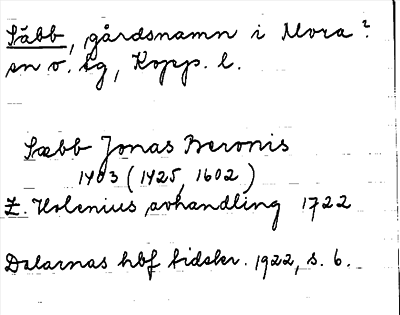 Säbb, gårdsnamn i Mora?
sn o. sg, Kopp. l.
Sæbb Jonas Beronis
1403 (1425, 1602)
E. Holenius avhandling 1722
Dalarnas hbf tidskr. 1922, s. 6.